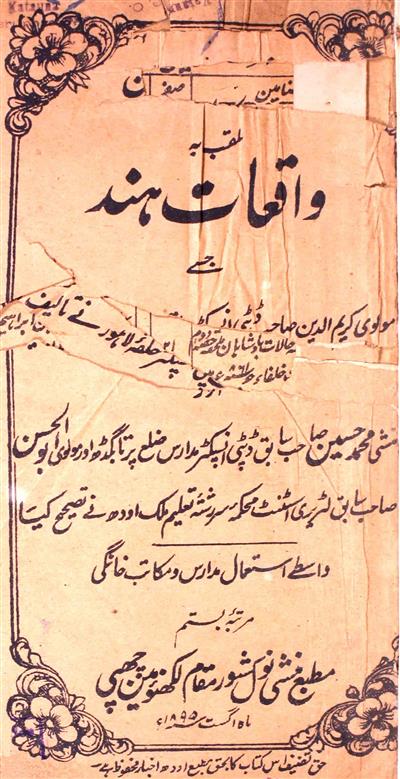 Katauna
مضامین
ملقب بہ
واقعات ہند
جسے
مولوی کریم الدین صاحب ڈپٹی انسپکٹر حلقۂ لاہور نے تالیف
حالات بادشاہان
منشی محمد حسین صاحب سابق ڈپٹی انسپکٹر مدارس ضلع پرتاب گڈھ اور مولوی ابو الحسن
صاحب سابق لٹریری اسٹنٹ محکمۂ سررشتۂ تعلیم ملک اودھ نے تصحیح کیا
واسطے استعمال مدارس و مکاتب خانگی
مرتبۂ بستم
مطبع منشی نول کشور مقام لکھنؤ مین چھپی
ماہ اگست ۱۸۹۵ء
حق تصنیف اس کتاب کا بحق مطبع اودھ اخبار محفوظ ہے